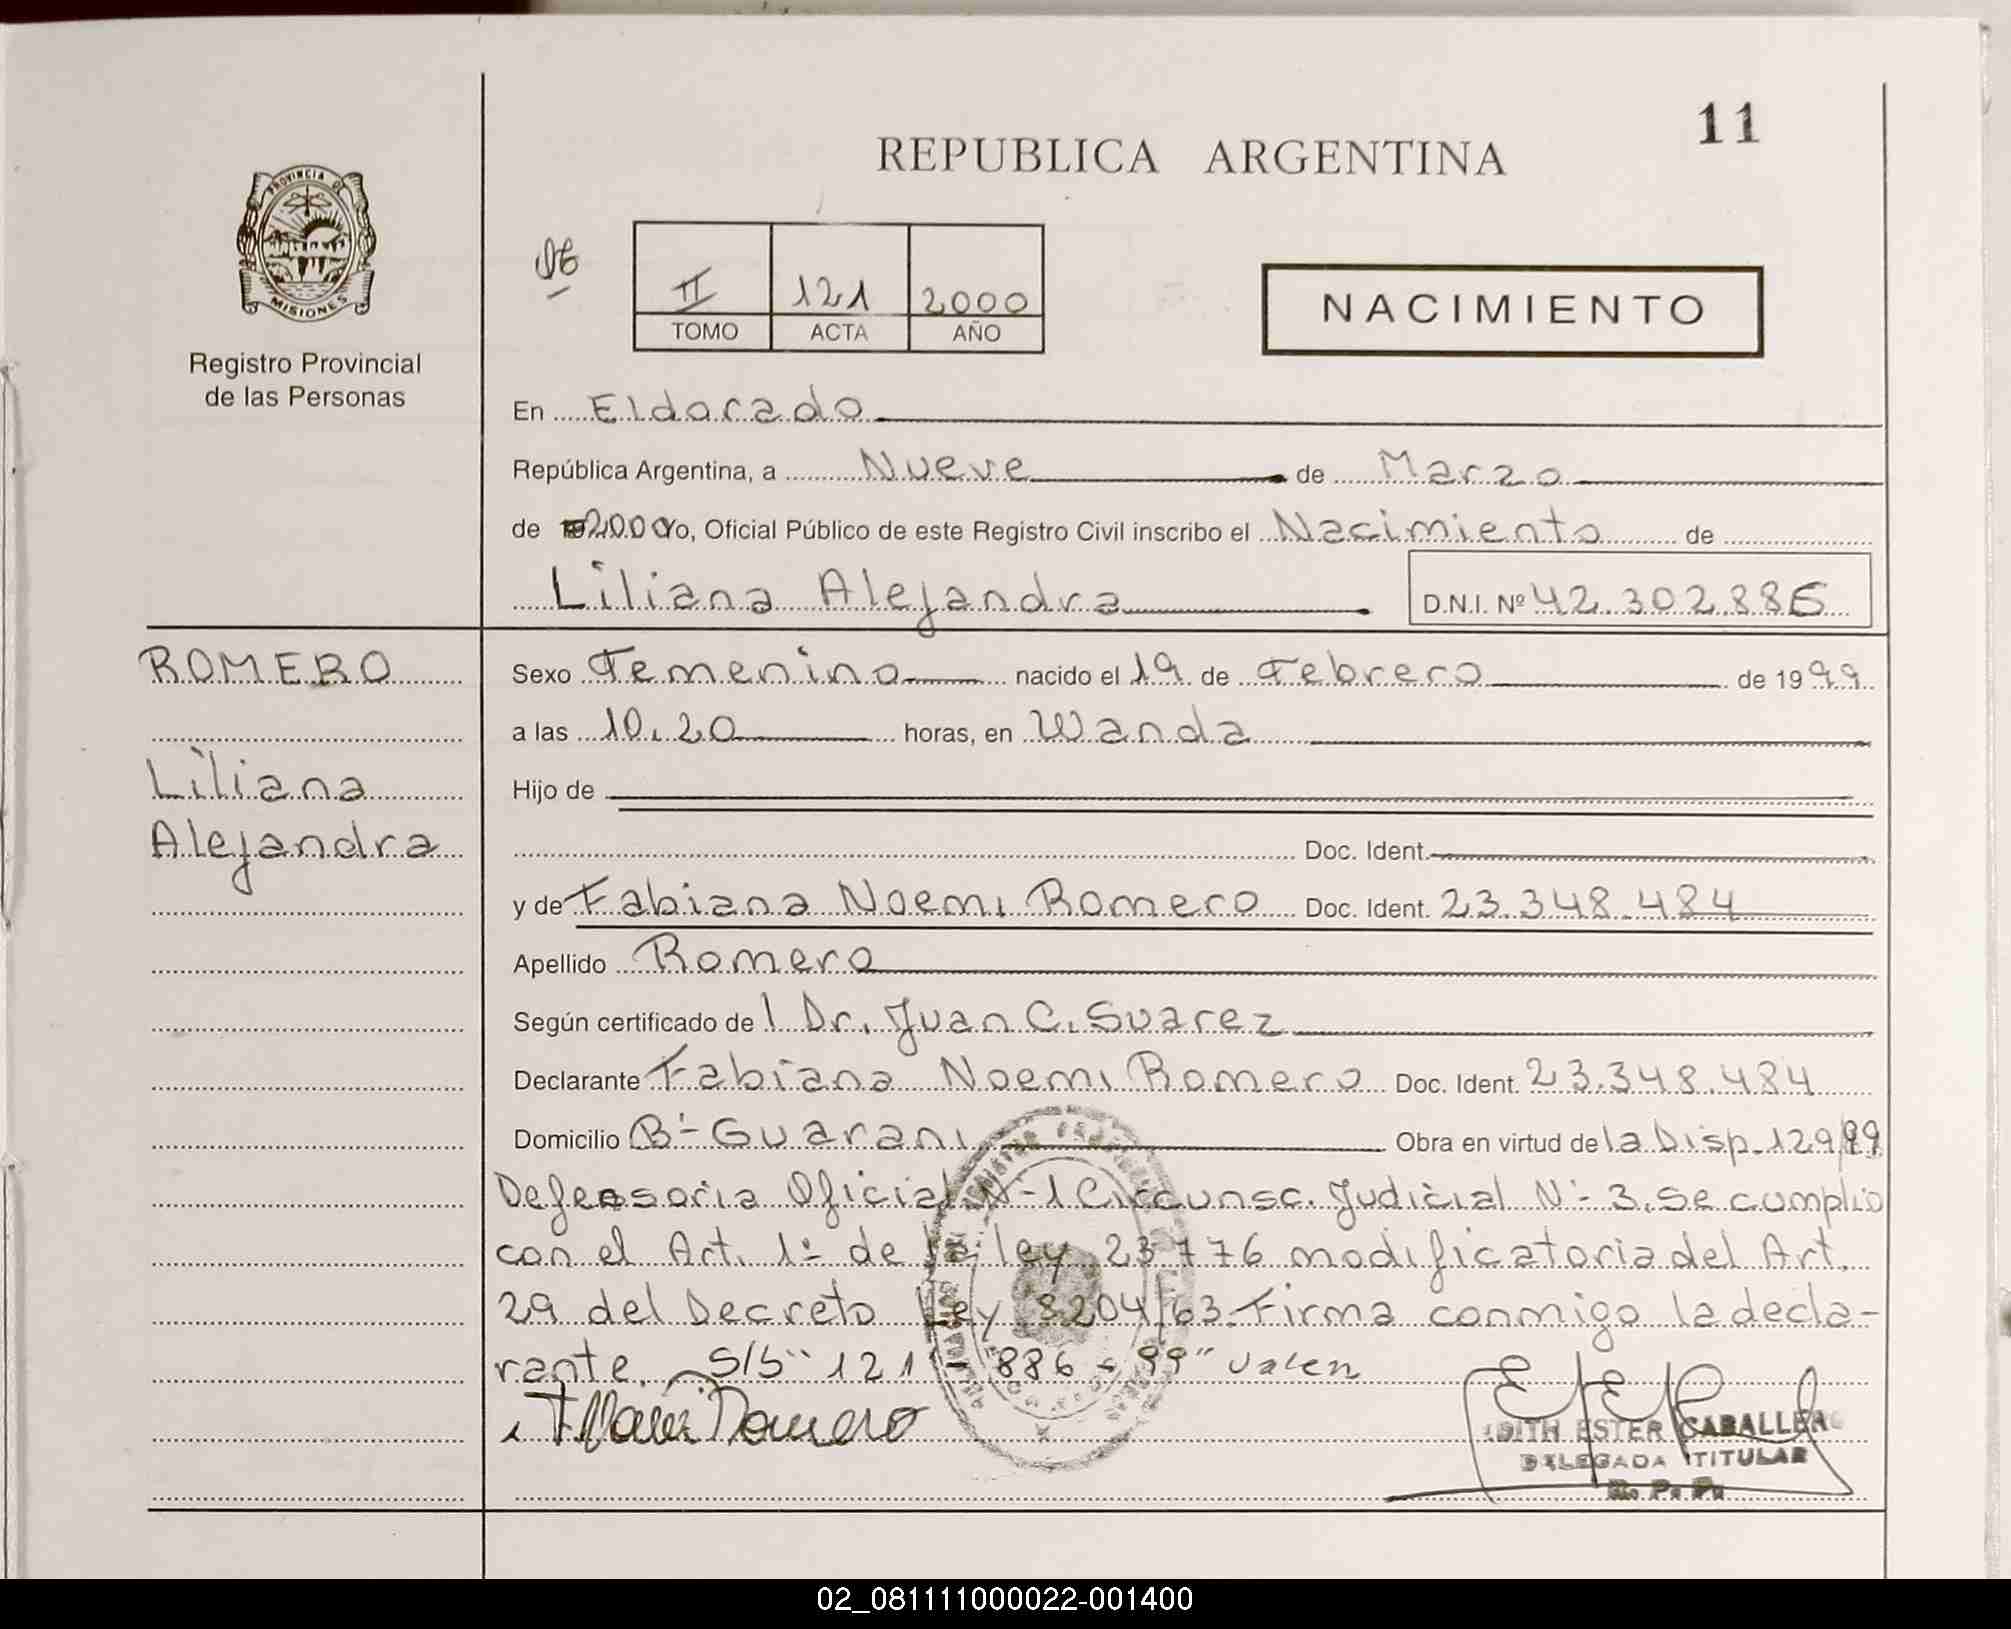 11
REPUBLICA ARGENTINA
PROVINCIA DE
MISIONES
Registro Provincial
de las Personas
II 121 2000
TOMO ACTA AÑO
NACIMIENTO
En Eldorado
República Argentina, a Nueve de Marzo
de 2000 Yo, Oficial Público de este Registro Civil inscribo el Nacimiento de
Liliana Alejandra D.N.I. Nº 42.302.886
ROMERO
Liliana
Alejandra
Sexo Femenino nacido el 19 de Febrero de 1999
a las 10.20 horas, en Wanda
Hijo de
Doc. Ident.
y de Fabiana Noemi Romero Doc. Ident. 23.348.484
Apellido Romero
Según certificado de l Dr. Juan C. Suarez
Declarante Fabiana Noemi Romero Doc. Ident. 23.348.484
Domicilio Bº Guarani Obra en virtud de la Disp. 129/99
Defensoria Oficial Nº 1 Circunsc. Judicial Nº 3. Se cumplio
con el Art. 1º de la ley 23776 modificatoria del Art.
29 del Decreto Ley 8204/63. Firma conmigo la decla-
rante. S/S "121" - "886 - 99" Valen
EDITH ESTER CABALLERO
DELEGADA TITULAR
R. P. P.
02_081111000022-001400